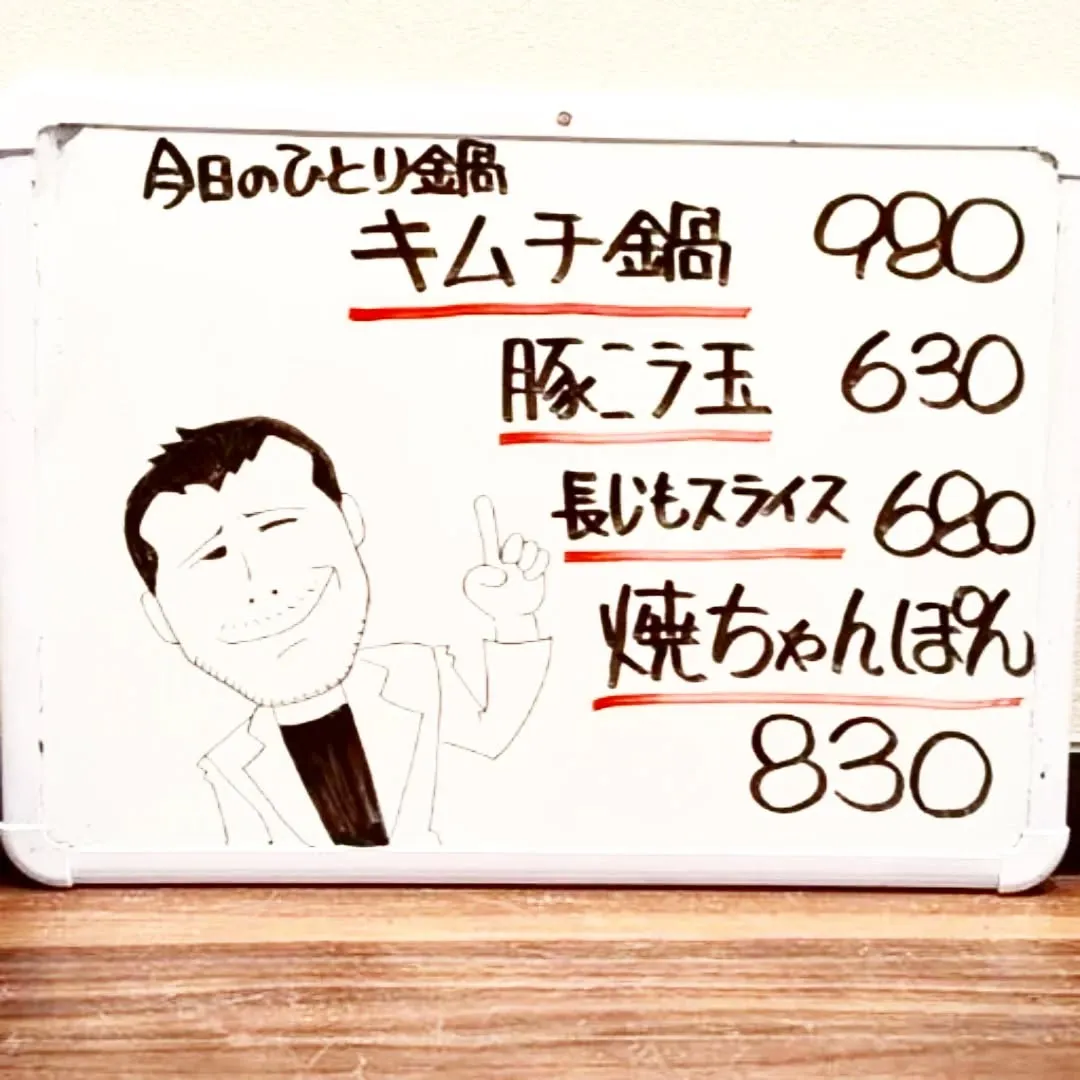 今日のひとり鍋
キムチ鍋 980
豚こラ玉 630
長じもスライス 680
焼ちゃんぽん
830